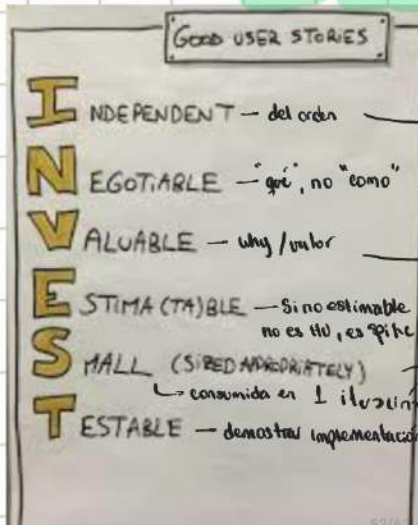 GOOD USER STORIES
INDEPENDENT — del orden
NEGOTIABLE — "qué", no "como"
VALUABLE — why / valor
ESTIMA(TA)BLE — Si no estimable
no es HU, es spike
SMALL (SIZED APPROPRIATELY)
↳ consumida en 1 iteración
TESTABLE — demostrar implementación